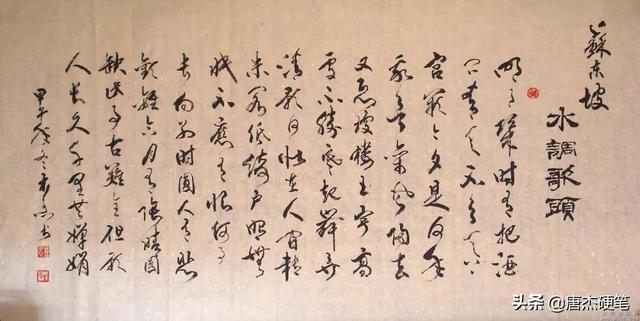 蘇东坡
水調歌頭
明月幾时有把酒
问青天不知天上
宫闕今夕是何年
我欲乘风归去
又恐瓊楼玉宇高
處不勝寒起舞弄
清影何似在人间转
朱阁低绮户照無
眠不應有恨何事
长向别时圆人有悲
歡離合月有陰晴圆
缺此事古難全但願
人长久千里共嬋娟
甲午 书
头条 @唐杰硬笔